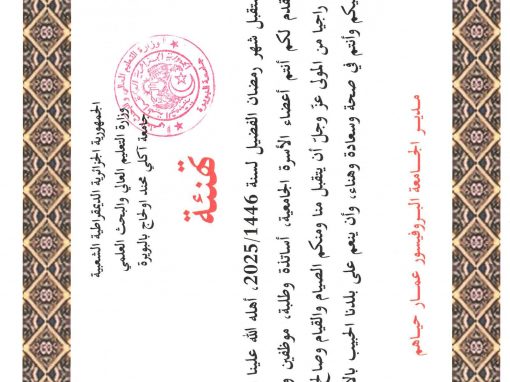 الجمهورية الجزائرية الديمقراطية الشعبية
وزارة التعليم العالي والبحث العلمي
جامعة آكلي محند اولحاج بالبويرة
تهنئة
ستقبل شهر رمضان الفضيل لسنة 2025/1446، أهله الله علينا
قدم لكم أنتم أعضاء الأسرة الجامعية، أساتذة وطلبة، موظفين و
راجيا من المولى عزّ وجلّ أن يتقبل منا ومنكم الصيام والقيام وصالح
يكم وأنتم في صحة وسعادة وهناء، وأن ينعم على بلدنا الحبيب بالأ
مدير الجامعة البروفيسور عمار حياهم